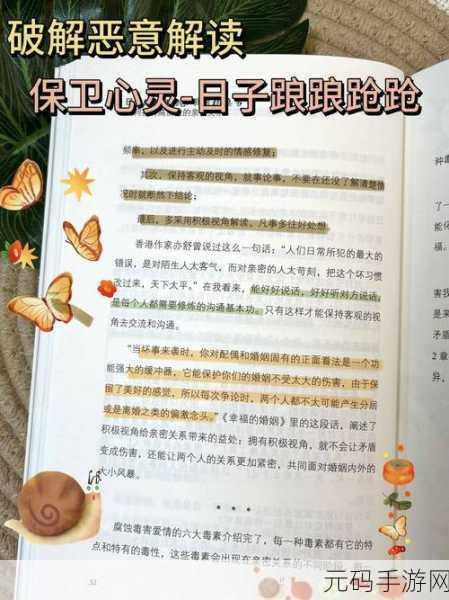 破解恶意解读
保卫心灵-日子踉踉跄跄
频率，以及进行主动及时的情感修复；
其次，保持客观的视角，就事论事，不要在还没了解清楚情
况时就断然下结论；
最后，多采用积极视角解读，凡事多往好处想。
香港作家亦舒曾说过这么一句话：“人们日常所犯的最大的
错误，是对陌生人太客气，而对亲密的人太苛刻，把这个坏习惯
改过来，天下太平。”在我看来，能好好说话，好好听对方说话，
是每个人都需要修炼的沟通基本功。只有这样才能保持客观的视
角去交流和沟通。
“当坏事来袭时，你对配偶和婚姻固有的正面看法是一个功
能强大的缓冲器，它能保护你们的婚姻不受太大的伤害，由于保
留了美好的感觉，所以每次争论时，两个人都不太可能产生分居
或是离婚之类的偏激念头。”《幸福的婚姻》里的这段话，阐述了
积极视角给亲密关系带来的益处：拥有积极视角，就不会让矛盾
变成伤害，还能让两个人的关系更加紧密，共同面对婚姻内外的
大小风暴。
腐蚀毒害爱情的六大毒素介绍完了，每一种毒素都有它的特
点和特有的毒性，这些毒素会出现在亲密关系的不同阶段，每一
32
种毒
了一
能
福。
害我
是来
2 章
异，
元码手游网